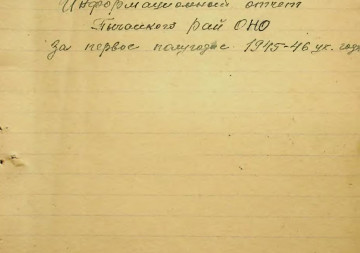 Информационный отчет
Пычасского рай ОНО
За первое полугодие 1945-46 уч. года